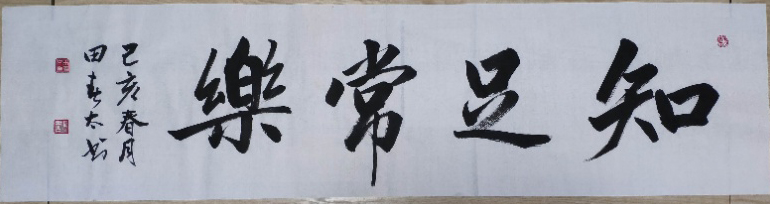 知足常樂
己亥春月
田春太书